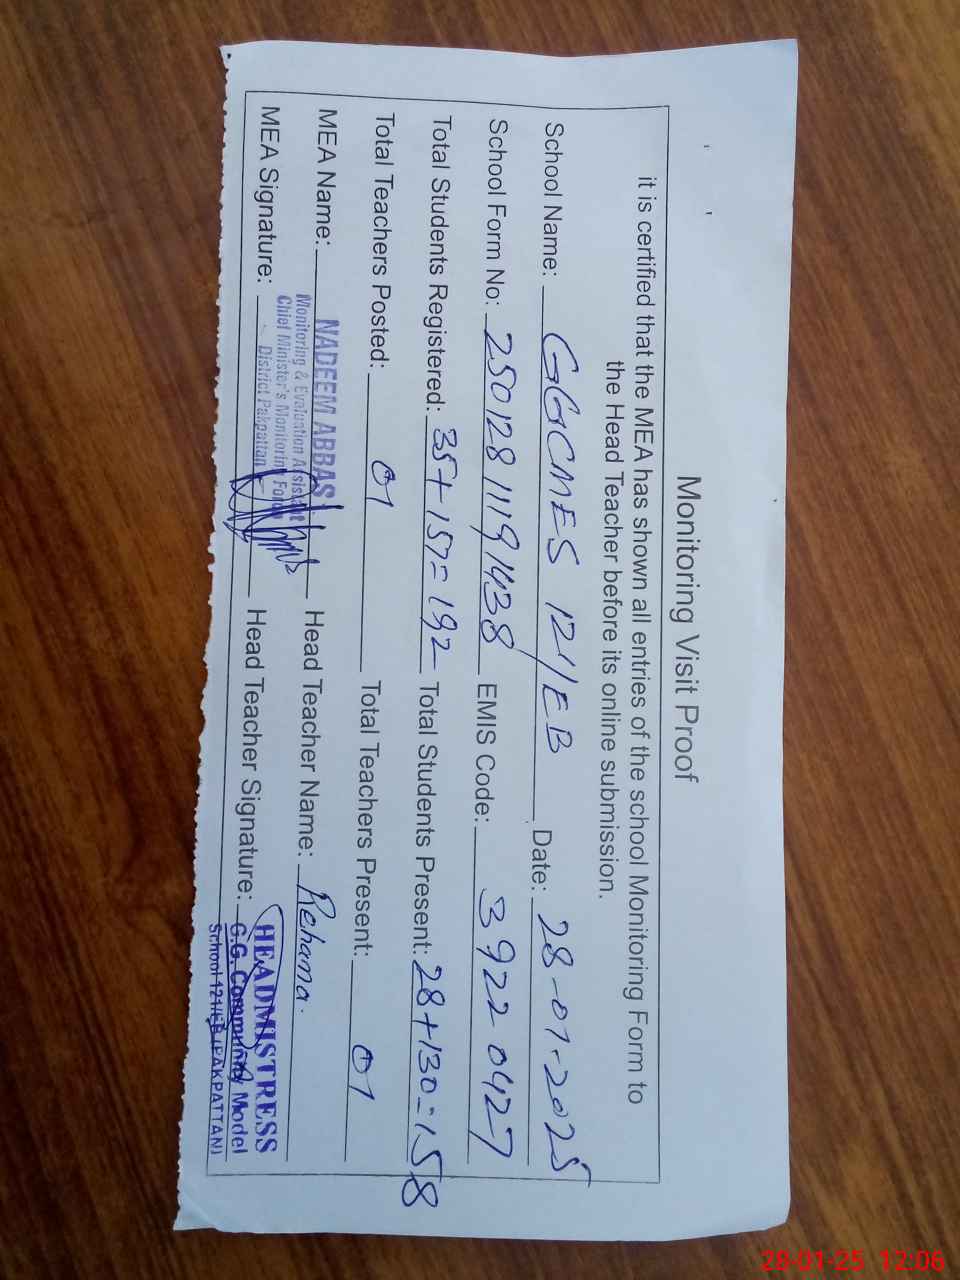 Monitoring Visit Proof
it is certified that the MEA has shown all entries of the school Monitoring Form to
the Head Teacher before its online submission.
School Name: GGCMES 121/EB Date: 28-01-2025
School Form No: 250128 11191438 EMIS Code: 3922 0427
Total Students Registered: 35+157=192 Total Students Present: 28+130=158
Total Teachers Posted: 01 Total Teachers Present: 01
MEA Name: NADEEM ABBAS Head Teacher Name: Rehana.
Monitoring & Evaluation Assistant
Chief Minister's Monitoring Force
District Pakpattan
MEA Signature: Head Teacher Signature:
HEADMISTRESS
G.G. Community Model
School 121/EB (PAKPATTAN)
28-01-25 12:06